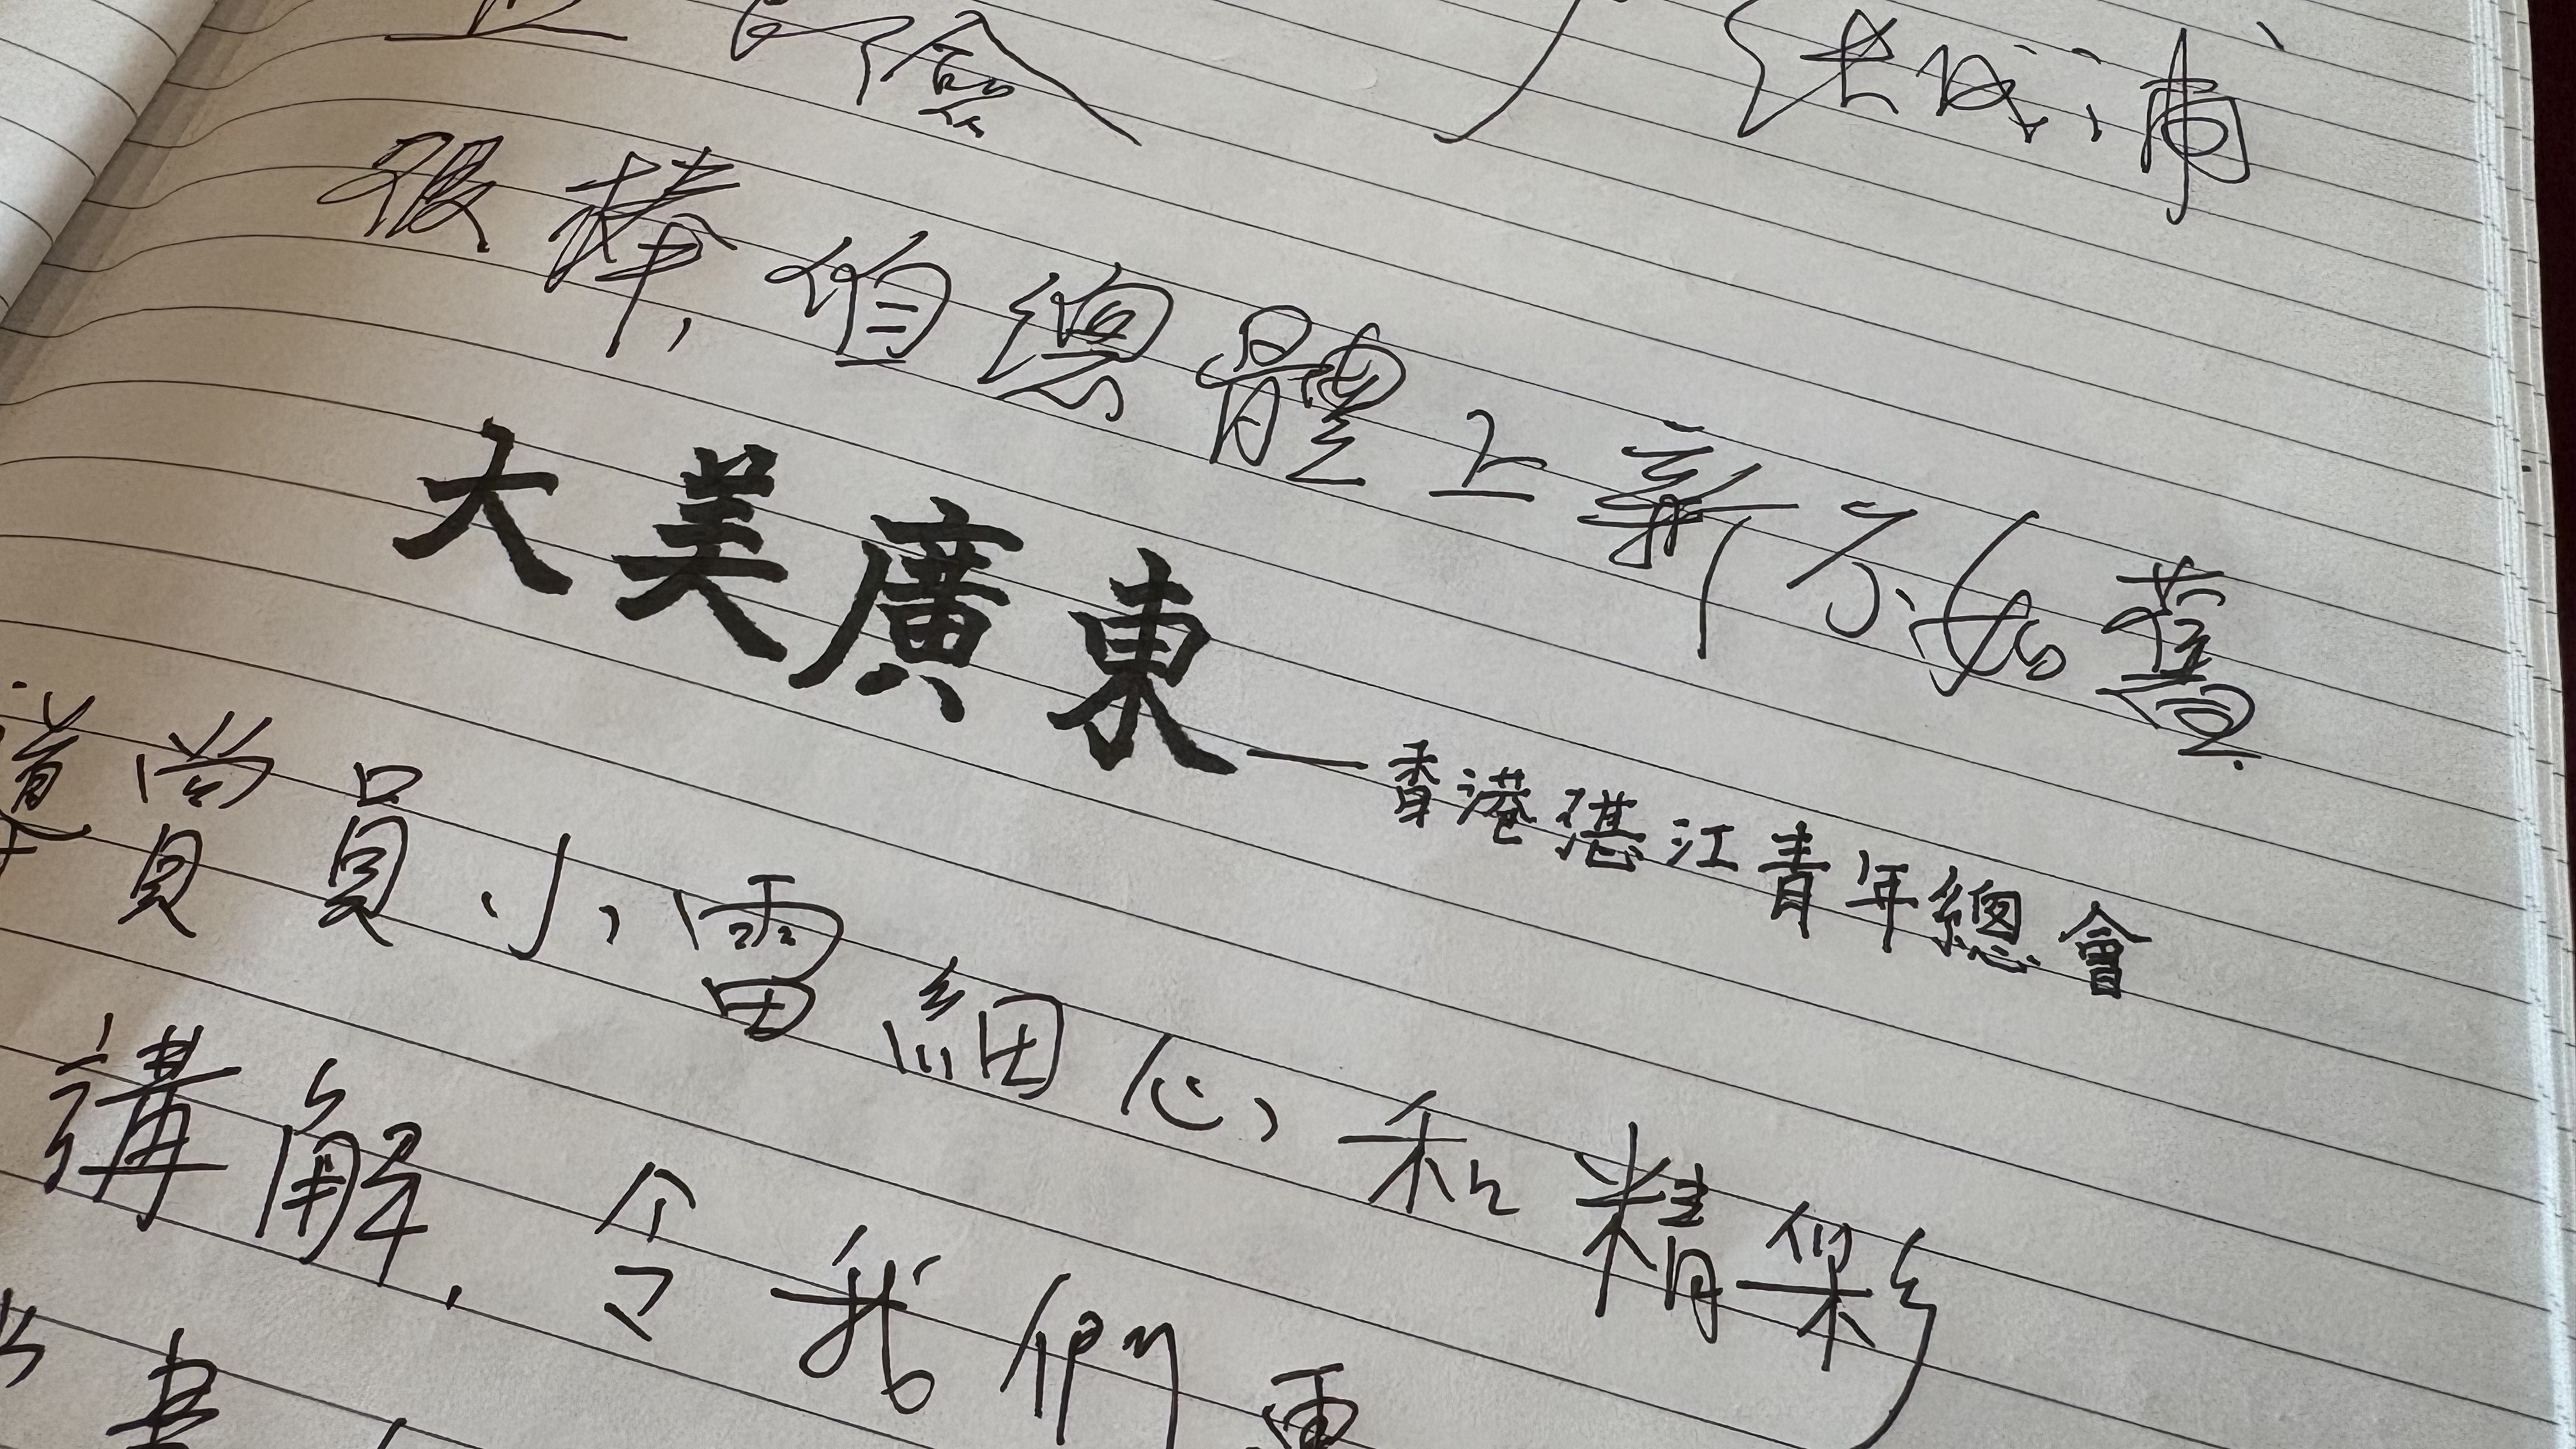 很棒,但總體上新不如舊.
大美廣東—香港湛江青年總會
導賞員小雷細心和精彩
講解,令我們更